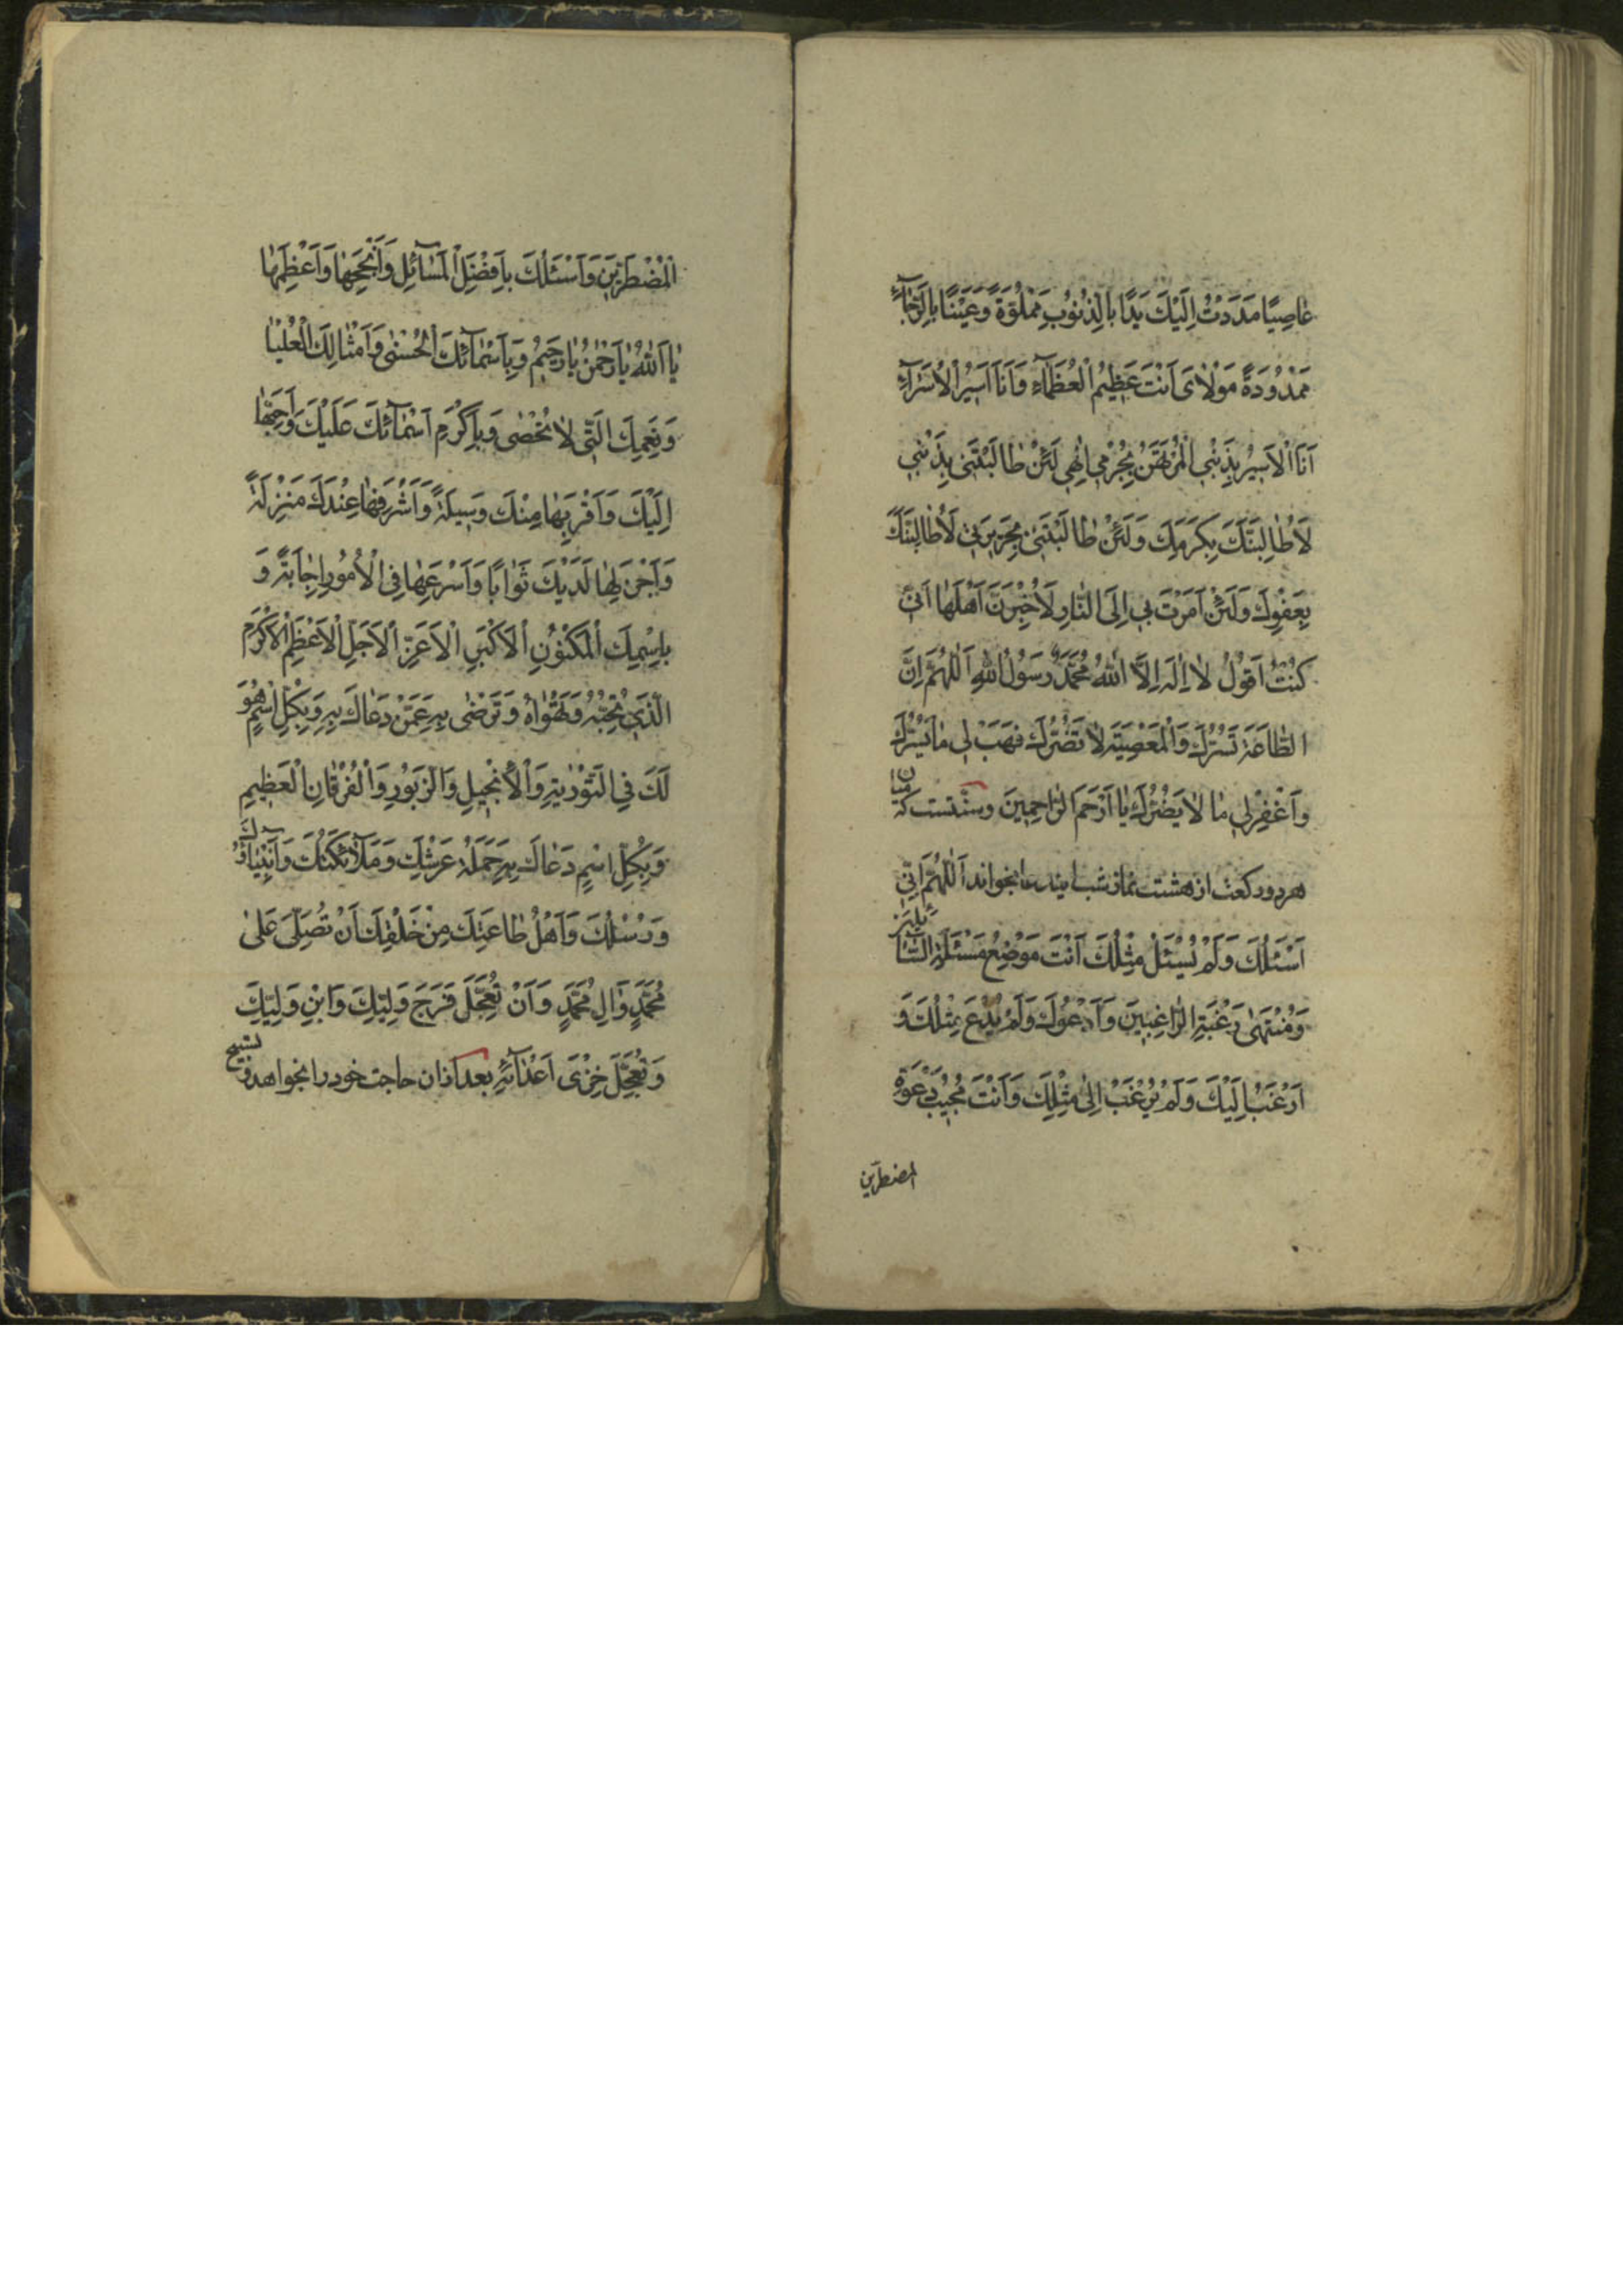 عاصِيًا مَدَدْتُ اِلَيْكَ يَدًا بِالذُّنُوبِ مَمْلُوَّةً وَعَيْنًا بِالرَّجَآءِ
مَمْدُودَةً مَوْلَاىَ اَنْتَ عَظِيمُ الْعُظَمَآءِ وَاَنَا اَسِيرُ الْاُسَرَآءِ
اَنَا الْاَسِيرُ بِذَنْبِي الْمُرْتَهَنُ بِجُرْمِي اِلٰهِي لَئِنْ طَالَبْتَنِي بِذَنْبِي
لَاُطَالِبَنَّكَ بِكَرَمِكَ وَلَئِنْ طَالَبْتَنِي بِجَرِيرَتِي لَاُطَالِبَنَّكَ
بِعَفْوِكَ وَلَئِنْ اَمَرْتَ بِي اِلَى النَّارِ لَاُخْبِرَنَّ اَهْلَهَا اَنِّي
كُنْتُ اَقُولُ لَا اِلٰهَ اِلَّا اللّٰهُ مُحَمَّدٌ رَسُولُ اللّٰهِ اَللّٰهُمَّ اِنَّ
الطَّاعَةَ تَسُرُّكَ وَالْمَعْصِيَةَ لَا تَضُرُّكَ فَهَبْ لِي مَا يَسُرُّكَ
وَاغْفِرْ لِي مَا لَا يَضُرُّكَ يَا اَرْحَمَ الرَّاحِمِينَ وسنّتست كه ميان
هر دو ركعت از هشت نماز شب ايندعا بخواند اَللّٰهُمَّ اِنِّي
اَسْئَلُكَ وَلَمْ يُسْئَلْ مِثْلُكَ اَنْتَ مَوْضِعُ مَسْئَلَةِ السَّآئِلِينَ
وَمُنْتَهٰى رَغْبَةِ الرَّاغِبِينَ وَاَدْعُوكَ وَلَمْ يُدْعَ مِثْلُكَ وَ
اَرْغَبُ اِلَيْكَ وَلَمْ يُرْغَبْ اِلٰى مِثْلِكَ وَاَنْتَ مُجِيبُ دَعْوَةِ
المضطرّين
الْمُضْطَرِّينَ وَاَسْئَلُكَ بِاَفْضَلِ الْمَسَآئِلِ وَاَنْجَحِهَا وَاَعْظَمِهَا
يَا اَللّٰهُ يَا رَحْمٰنُ يَا رَحِيمُ وَبِاَسْمَآئِكَ الْحُسْنٰى وَاَمْثَالِكَ الْعُلْيَا
وَنِعَمِكَ الَّتِي لَا تُحْصٰى وَبِاَكْرَمِ اَسْمَآئِكَ عَلَيْكَ وَاَحَبِّهَا
اِلَيْكَ وَاَقْرَبِهَا مِنْكَ وَسِيلَةً وَاَشْرَفِهَا عِنْدَكَ مَنْزِلَةً
وَاَجْزَلِهَا لَدَيْكَ ثَوَابًا وَاَسْرَعِهَا فِي الْاُمُورِ اِجَابَةً وَ
بِاسْمِكَ الْمَكْنُونِ الْاَكْبَرِ الْاَعَزِّ الْاَجَلِّ الْاَعْظَمِ الْاَكْرَمِ
الَّذِي تُحِبُّهُ وَتَهْوَاهُ وَتَرْضٰى بِهِ عَمَّنْ دَعَاكَ بِهِ وَبِكُلِّ اسْمٍ هُوَ
لَكَ فِي التَّوْرٰيةِ وَالْاِنْجِيلِ وَالزَّبُورِ وَالْفُرْقَانِ الْعَظِيمِ
وَبِكُلِّ اسْمٍ دَعَاكَ بِهِ حَمَلَةُ عَرْشِكَ وَمَلَآئِكَتُكَ وَاَنْبِيَآؤُكَ
وَرُسُلُكَ وَاَهْلُ طَاعَتِكَ مِنْ خَلْقِكَ اَنْ تُصَلِّيَ عَلٰى
مُحَمَّدٍ وَاٰلِ مُحَمَّدٍ وَاَنْ تُعَجِّلَ فَرَجَ وَلِيِّكَ وَابْنِ وَلِيِّكَ
وَتُعَجِّلَ خِزْىَ اَعْدَآئِهِ بعد از ان حاجت خود را بخواهد و تسبيح